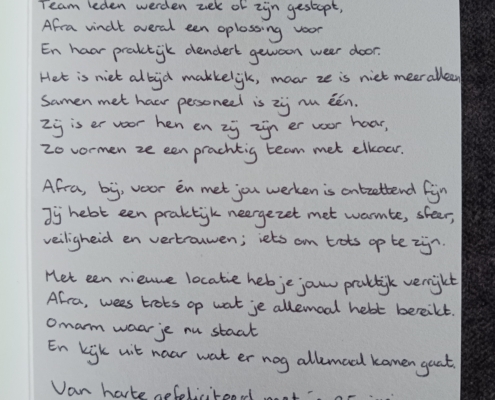 Team leden werden ziek of zijn gestopt,
Afra vindt overal een oplossing voor
En haar praktijk dendert gewoon weer door.
Het is niet altijd makkelijk, maar ze is niet meer alleen
Samen met haar personeel is zij nu één.
Zij is er voor hen en zij zijn er voor haar,
Zo vormen ze een prachtig team met elkaar.
Afra, bij, voor én met jou werken is ontzettend fijn
Jij hebt een praktijk neergezet met warmte, sfeer,
veiligheid en vertrouwen; iets om trots op te zijn.
Met een nieuwe locatie heb je jouw praktijk verrijkt
Afra, wees trots op wat je allemaal hebt bereikt.
Omarm waar je nu staat
En kijk uit naar wat er nog allemaal komen gaat.
Van harte gefeliciteerd met